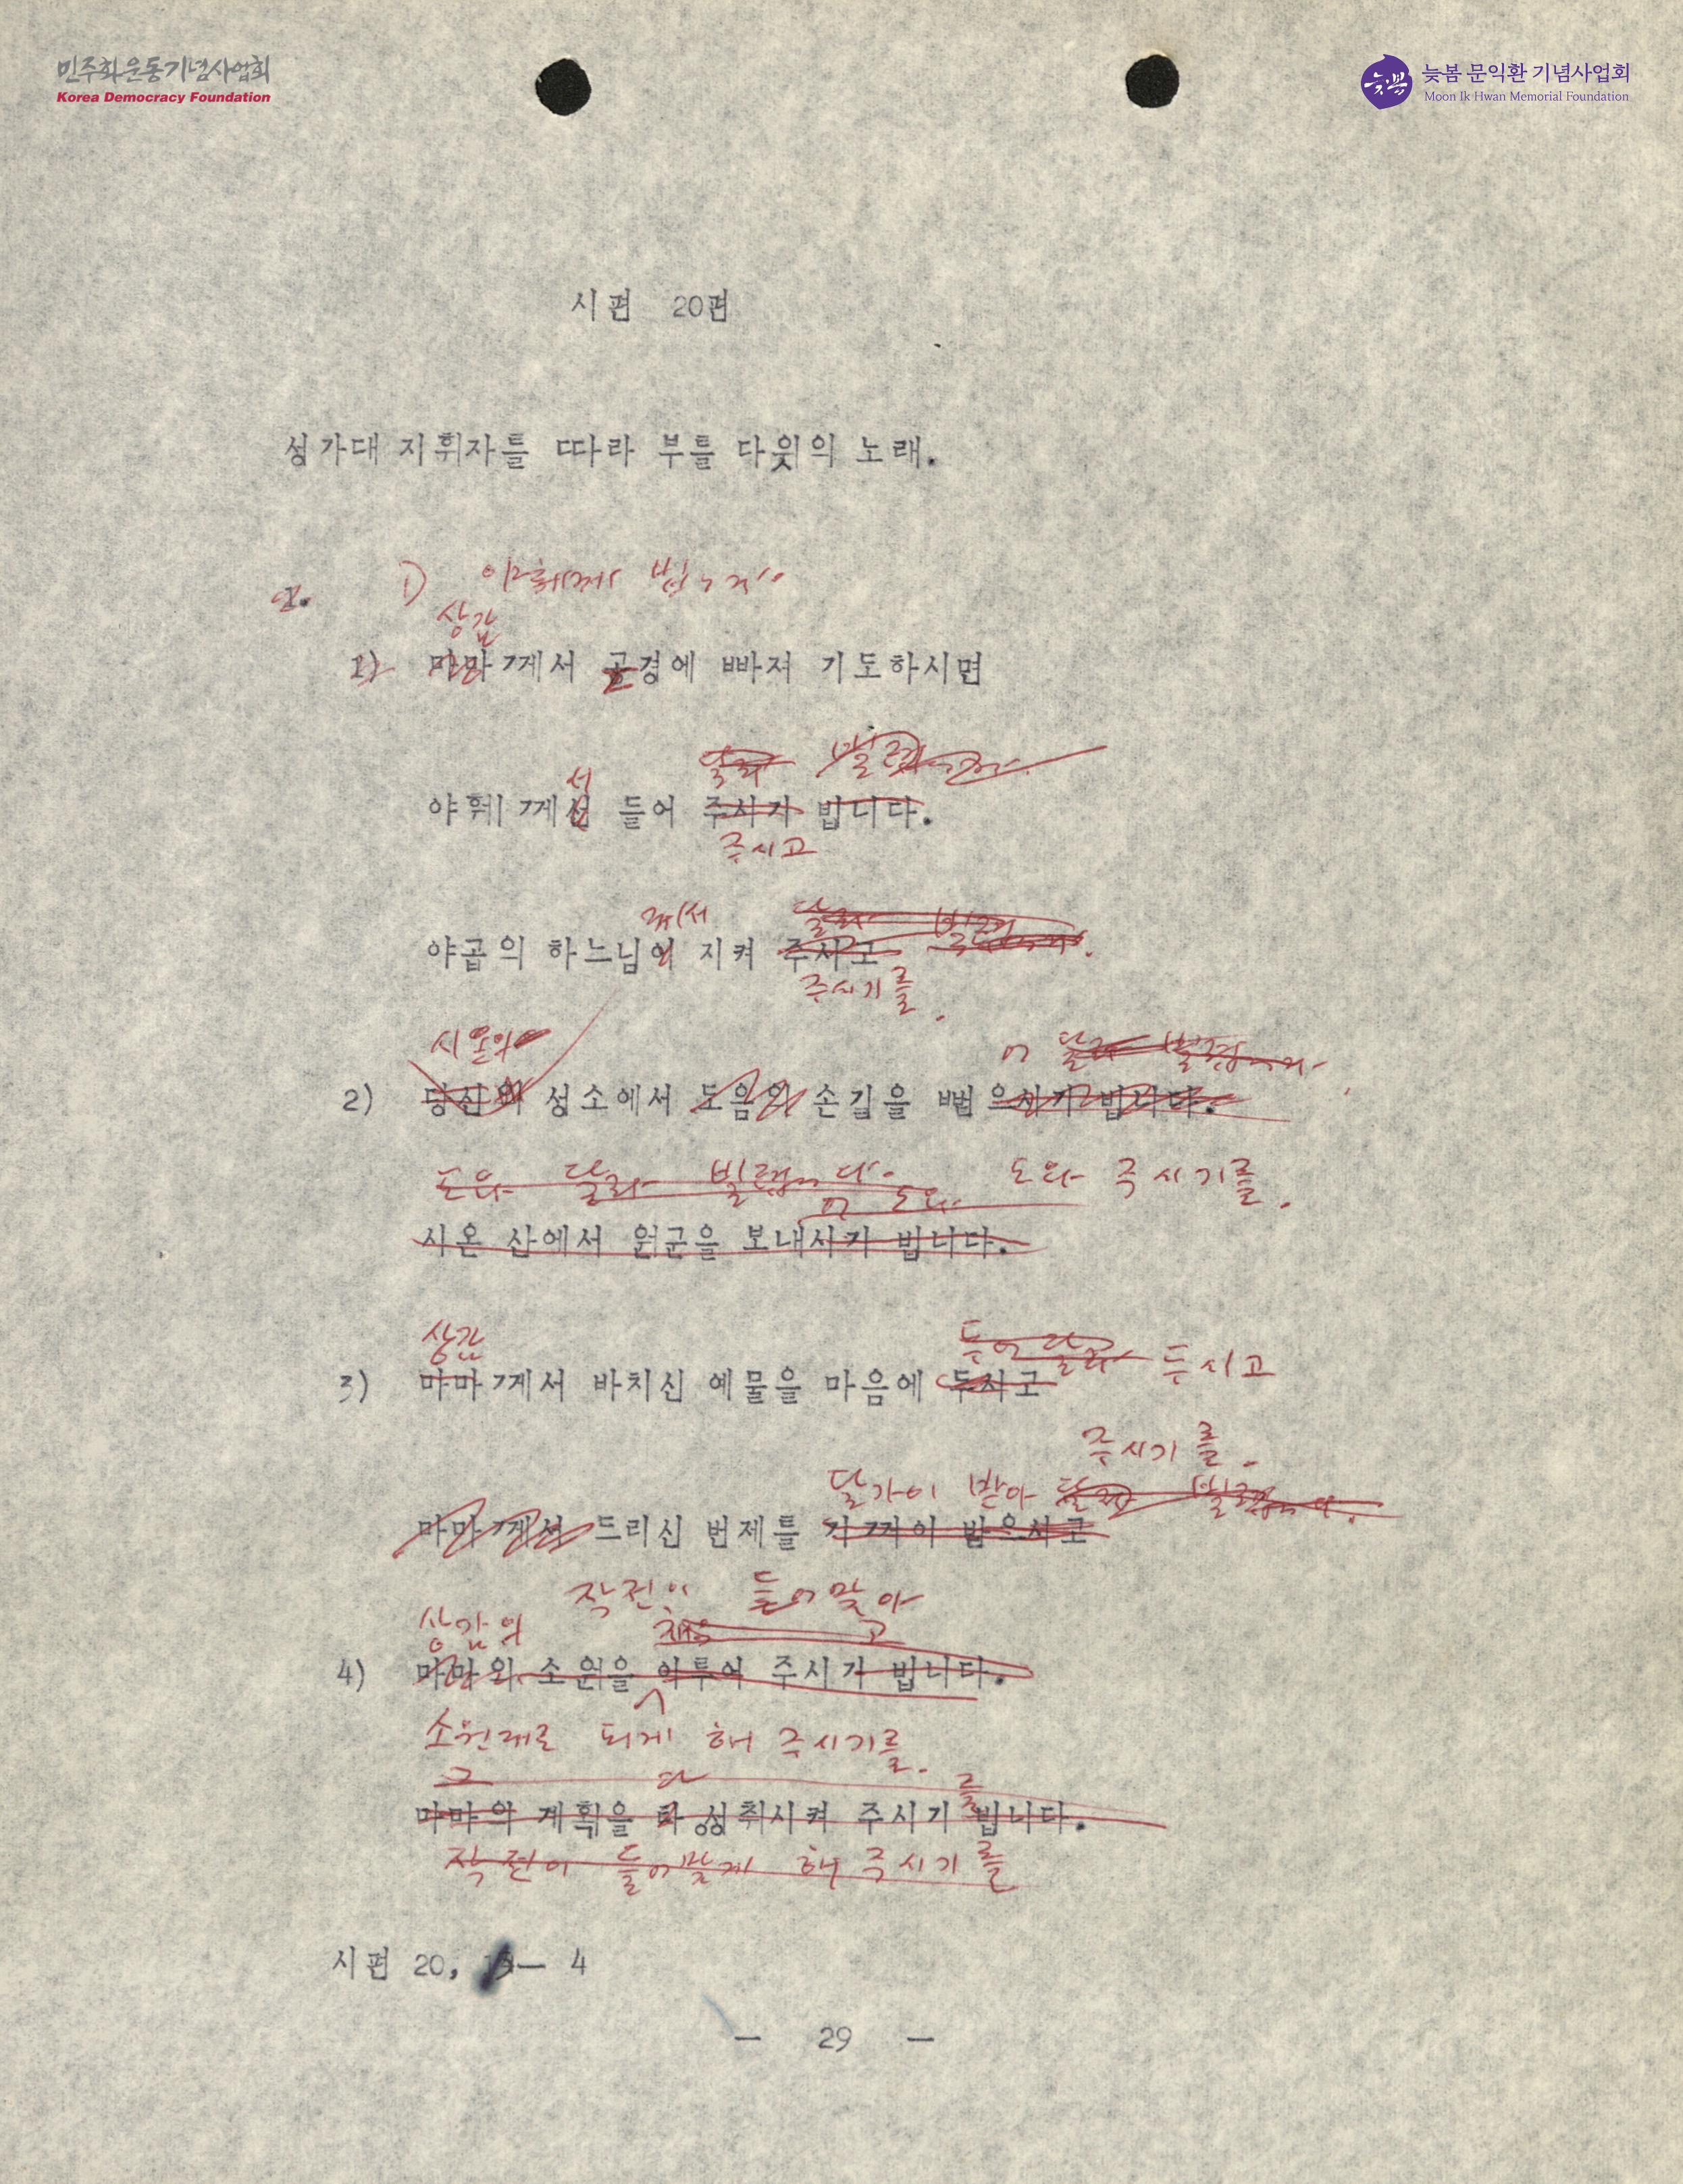 민주화운동기념사업회
Korea Democracy Foundation
늦봄
늦봄 문익환 기념사업회
Moon Ik Hwan Memorial Foundation
시편 20편
성가대 지휘자를 따라 부를 다윗의 노래.
1) 야훼께 빕니다.
상감
1) 마마께서 곤경에 빠져 기도하시면
서
야훼께선 들어 주시기 빕니다.
주시고
께서
야곱의 하느님이 지켜 주시고
주시기를.
시온의
어
2) 당신의 성소에서 도움의 손길을 뻗으시기 빕니다.
도와 달라 빌렵니다. 도와 주시기를.
시온 산에서 원군을 보내시기 빕니다.
상감
두시고
3) 마마께서 바치신 예물을 마음에 두시고
주시기를.
달가이 받아
마마께서 드리신 번제를 기꺼이 받으시고
작전이 들어맞아
상감의
4) 마마의 소원을 이루어 주시기 빕니다.
소원대로 되게 해 주시기를.
마마의 계획을 다 성취시켜 주시기 빕니다.
작전이 들어맞게 해 주시기를
시편 20, — 4
— 29 —